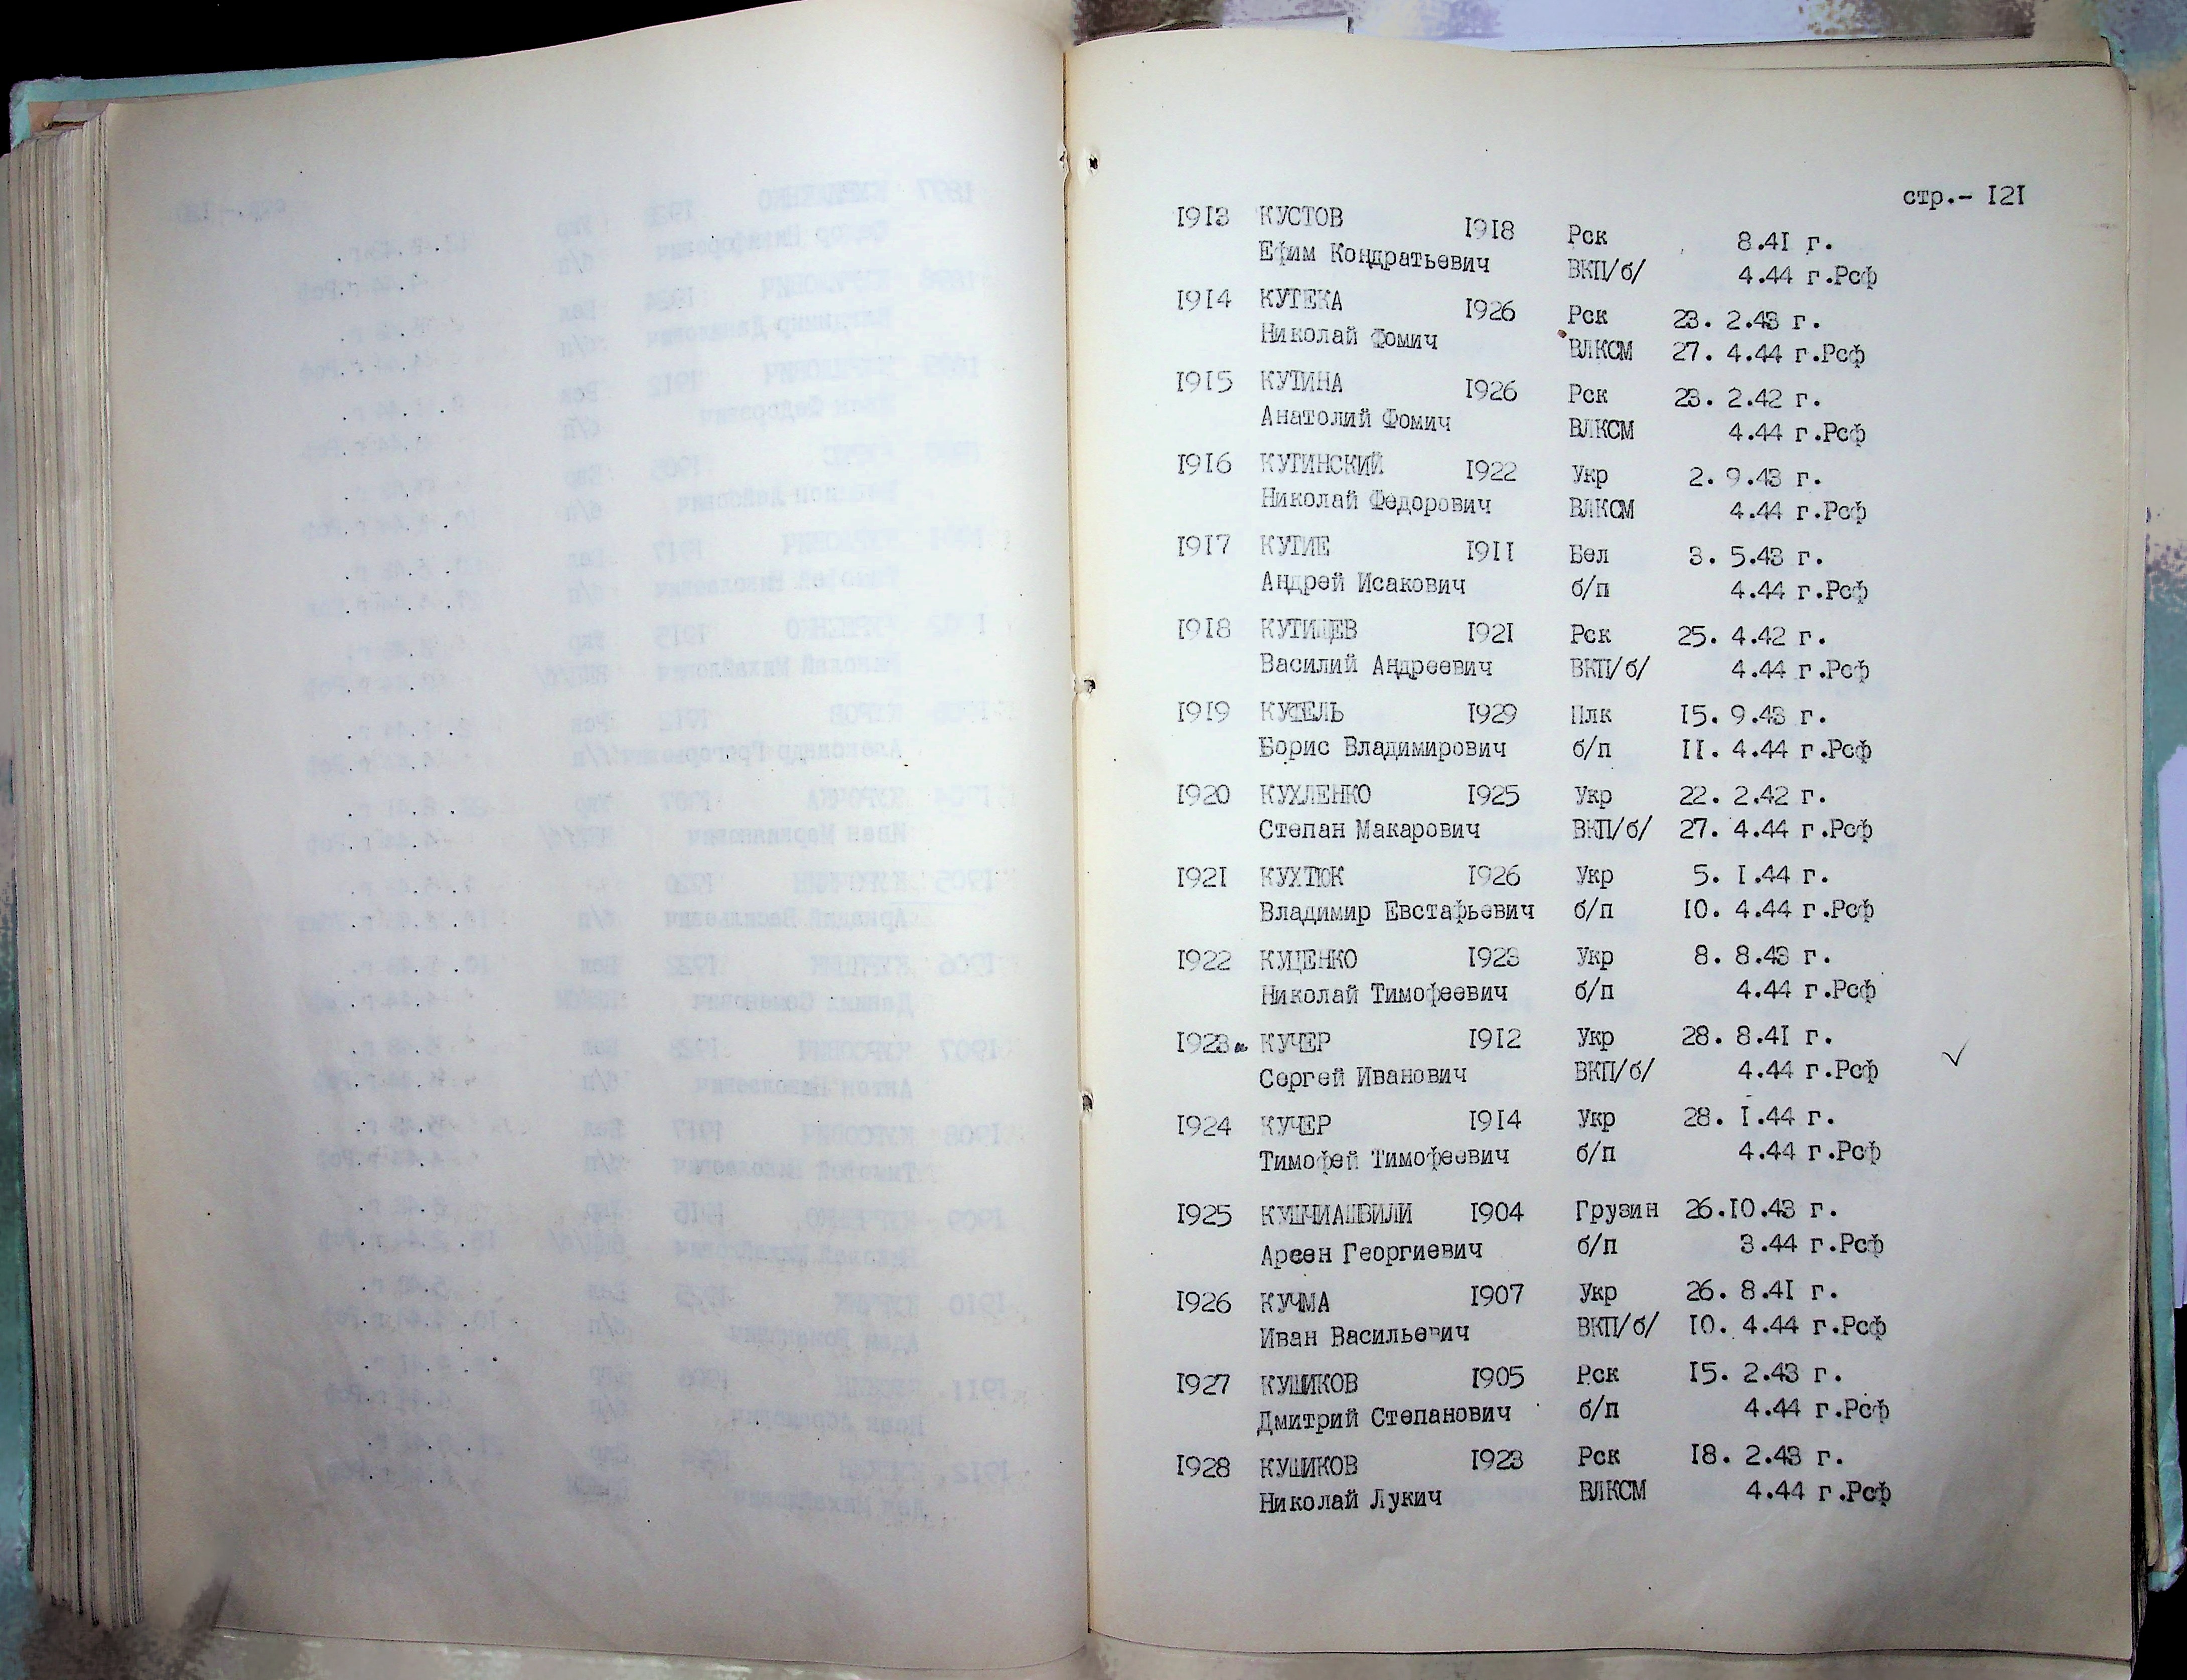 стр.- 121
1913 КУСТОВ 1918 Рск 8.41 г.
Ефим Кондратьевич ВКП/б/ 4.44 г.Рсф
1914 КУТЕКА 1926 Рск 23. 2.43 г.
Николай Фомич ВЛКСМ 27. 4.44 г.Рсф
1915 КУТИНА 1926 Рск 23. 2.42 г.
Анатолий Фомич ВЛКСМ 4.44 г.Рсф
1916 КУТИНСКИЙ 1922 Укр 2. 9.43 г.
Николай Федорович ВЛКСМ 4.44 г.Рсф
1917 КУТИЕ 1911 Бел 3. 5.43 г.
Андрей Исакович б/п 4.44 г.Рсф
1918 КУТИЩЕВ 1921 Рск 25. 4.42 г.
Василий Андреевич ВКП/б/ 4.44 г.Рсф
1919 1929 Плк 15. 9.43 г.
Борис Владимирович б/п 11. 4.44 г.Рсф
1920 КУХЛЕНКО 1925 Укр 22. 2.42 г.
Степан Макарович ВКП/б/ 27. 4.44 г.Рсф
1921 КУХТЮК 1926 Укр 5. 1.44 г.
Владимир Евстафьевич б/п 10. 4.44 г.Рсф
1922 КУЦЕНКО 1923 Укр 8. 8.43 г.
Николай Тимофеевич б/п 4.44 г.Рсф
1923 КУЧЕР 1912 Укр 28. 8.41 г.
Сергей Иванович ВКП/б/ 4.44 г.Рсф
1924 КУЧЕР 1914 Укр 28. 1.44 г.
Тимофей Тимофеевич б/п 4.44 г.Рсф
1925 1904 Грузин 26.10.43 г.
Арсен Георгиевич б/п 3.44 г.Рсф
1926 КУЧМА 1907 Укр 26. 8.41 г.
Иван Васильевич ВКП/б/ 10. 4.44 г.Рсф
1927 КУШИКОВ 1905 Рск 15. 2.43 г.
Дмитрий Степанович б/п 4.44 г.Рсф
1928 КУШИКОВ 1923 Рск 18. 2.43 г.
Николай Лукич ВЛКСМ 4.44 г.Рсф